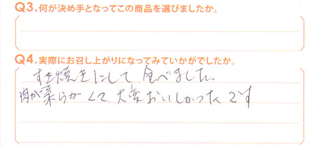 Q3.何が決め手となってこの商品を選びましたか。
Q4.実際にお召し上がりになってみていかがでしたか。
すき焼きにして食べました。
肉が柔らかくて大変おいしかったです